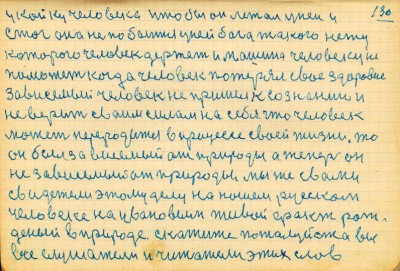 130
у койку человека чтобы он летал у ней и
стог она не побоится у ней бога такого нету
которого человек держет и машина человеку не
поможет когда человек потерял свое здоровие
зависемый человек не пришел к сознанию и
не верит своим силам на себя что человек
может переродится в процессе своей жизни. то
он был зависемый от природы а теперь он
не зависемый от природы, мы же с вами
свидетели этому делу на нашем русском
человеке на ивановым живой факт рож-
деный в природе. скажите пожалуйста вы
все слушатели и читатели этих слов